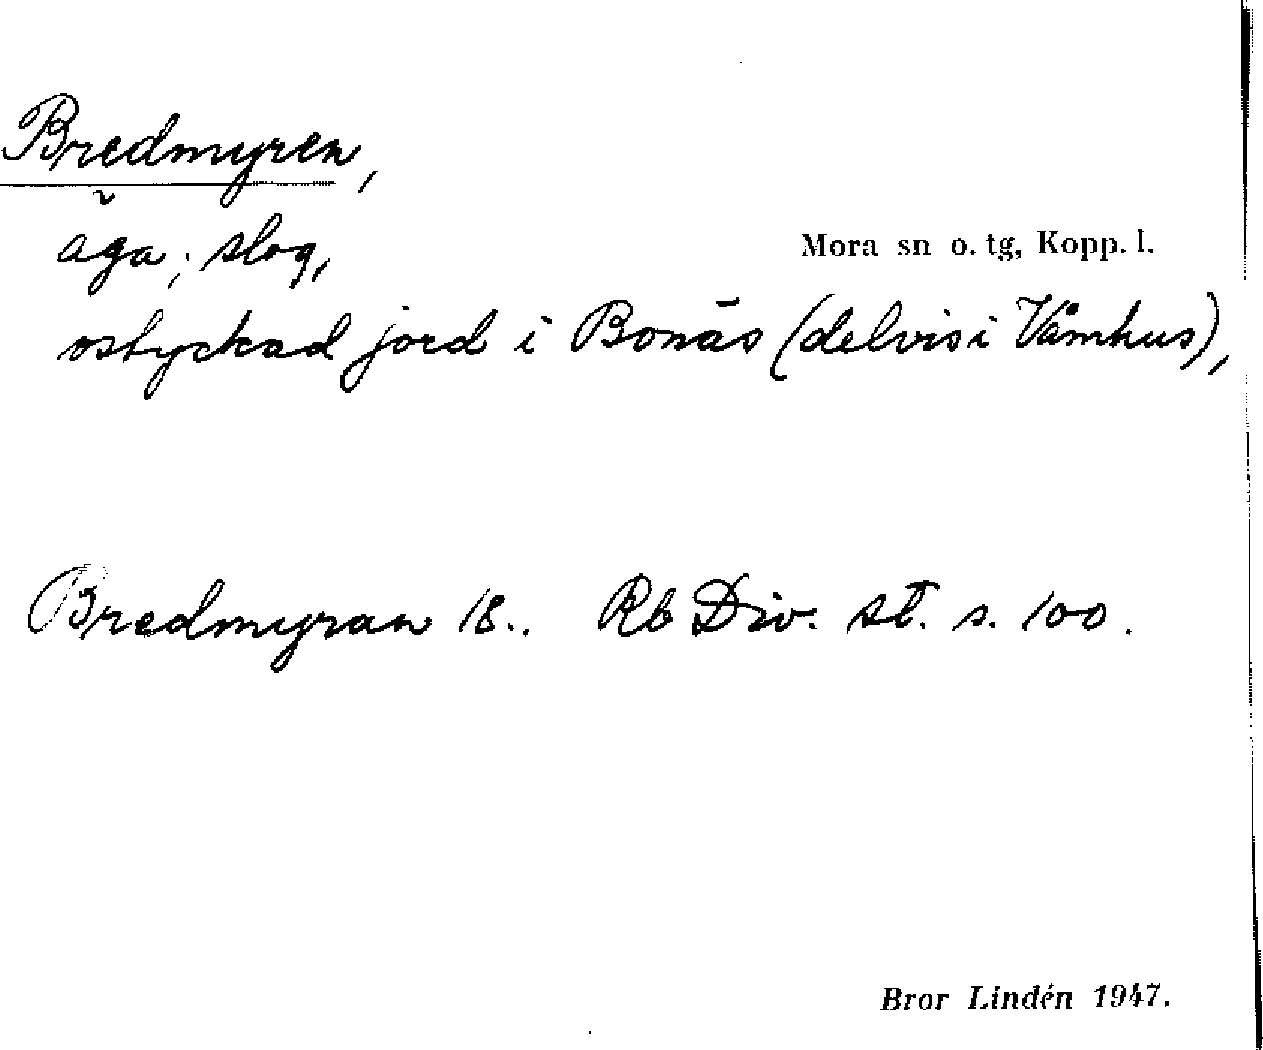 Bredmyren,
äga; slog,
Mora sn o. tg, Kopp. l.
ostyckad jord i Bonäs (delvis i Våmhus),
Bredmyran 18.. Rb Div. st. s. 100.
Bror Lindén 1947.